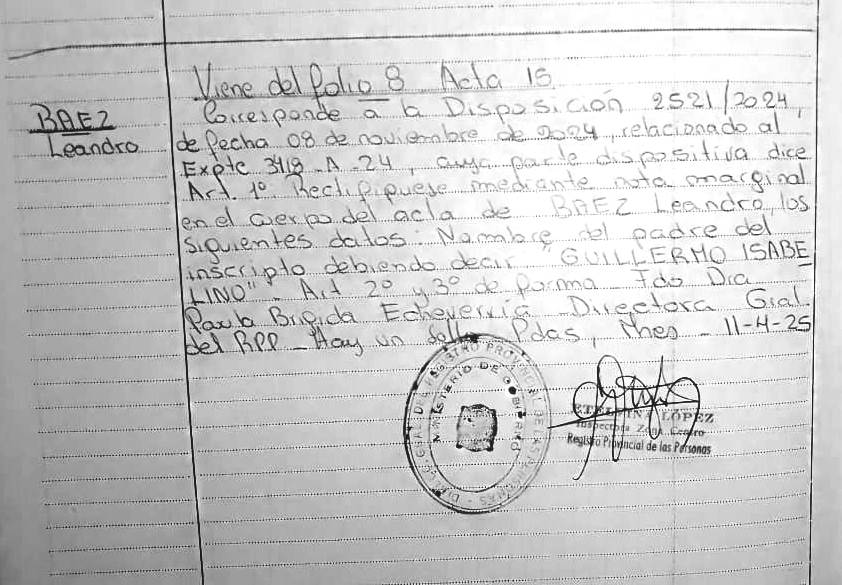 Viene del folio 8 Acta 15
BAEZ
Leandro
Corresponde a la Disposición 2521/2024,
de fecha 08 de noviembre de 2024, relacionado al
Expte 3418-A-24, cuya parte dispositiva dice
Art. 1º Rectifiquese mediante nota marginal
en el cuerpo del acta de BAEZ Leandro, los
siguientes datos: Nombre del padre del
inscripto debiendo decir "GUILLERMO ISABE
LINO". Art 2º y 3º de forma Fdo Dra
Paula Brigida Echeverría Directora Gral.
del RPP - Hay un sello Pdas, Mnes - 11-4-25
DIRECC. GRAL. DEL REGISTRO PROVINCIAL DE LAS PERSONAS
MINISTERIO DE GOBIERNO
LÓPEZ
Inspectora Zona Centro
Registro Provincial de las Personas